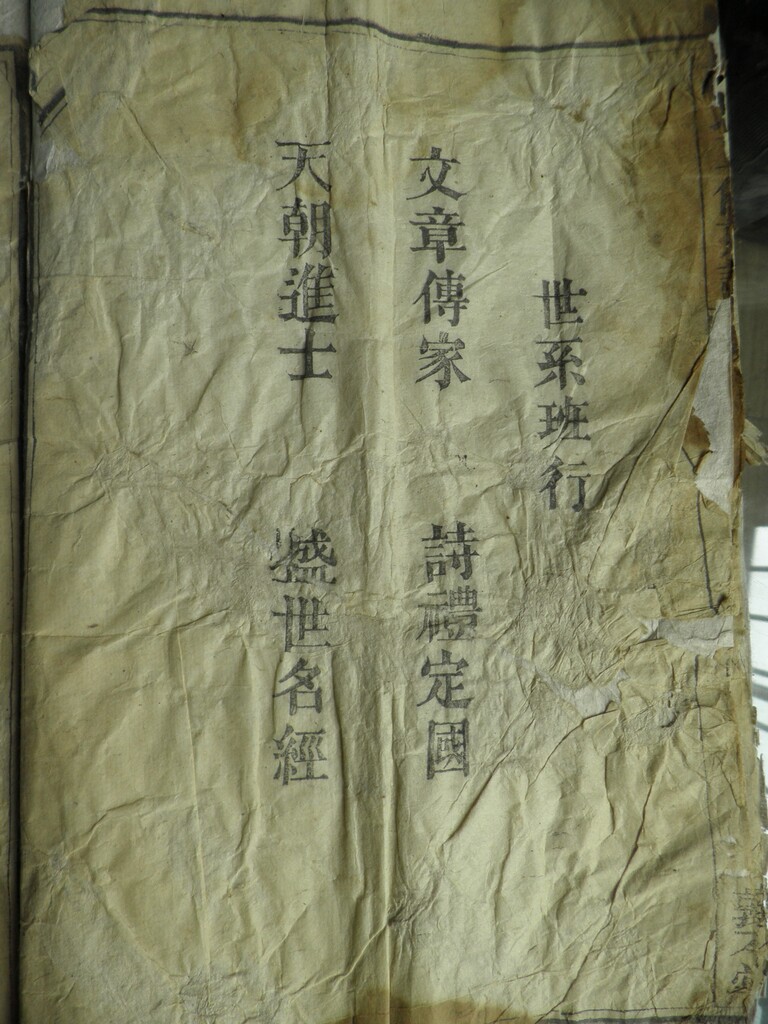 世系班行
文章傳家 詩禮定國
天朝進士 盛世名經